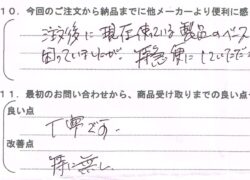 10. 今回のご注文から納品までに他メーカーより便利に感
注文後に現在使っている製品のベース
困っていましたが、特急便にしていただ
11. 最初のお問い合わせから、商品受け取りまでの良い点
良い点
丁寧です。
改善点
特に無し